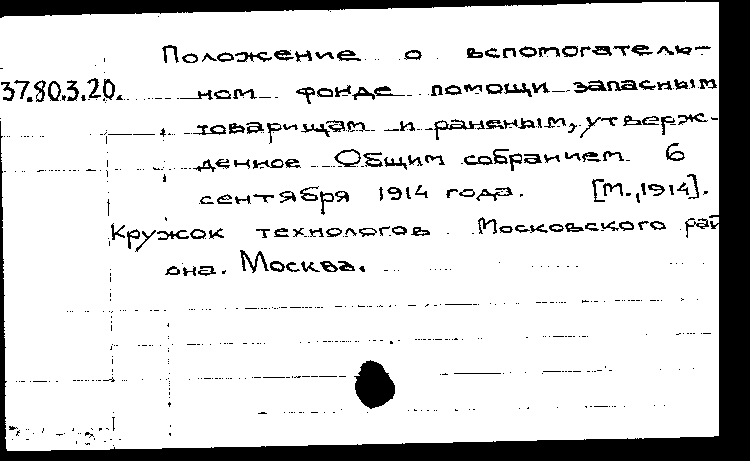 Положение о вспомогатель-
37.80.3.20. ном фонде помощи запасным
товарищам и раненым, утверж-
денное Общим собранием 6
сентября 1914 года. [М.,1914].
Кружок технологов Московского рай
она. Москва.